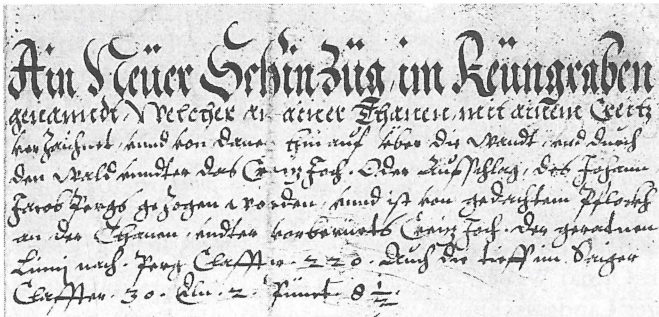 Ain Neüer Schin Züg im Reüngraben
genanndt, Welcher an ainer Thanen mit ainem Creitz
verzaichnet, vnnd von danen hin auf vber die Wandt, vnd durch
den Wald vnndter das Creitz Joch. Oder Aufschlag, des Johann
Jacob Pergs gezogen worden, vnnd ist von gedachtem Pflockh
an der Thanen vndter Creitz Joch. der geratnen
Linni nach. Perg Claffter 220. Auch die tieff im Saiger
Claffter. 30. Eln. 2. Pünct 8 1/2.